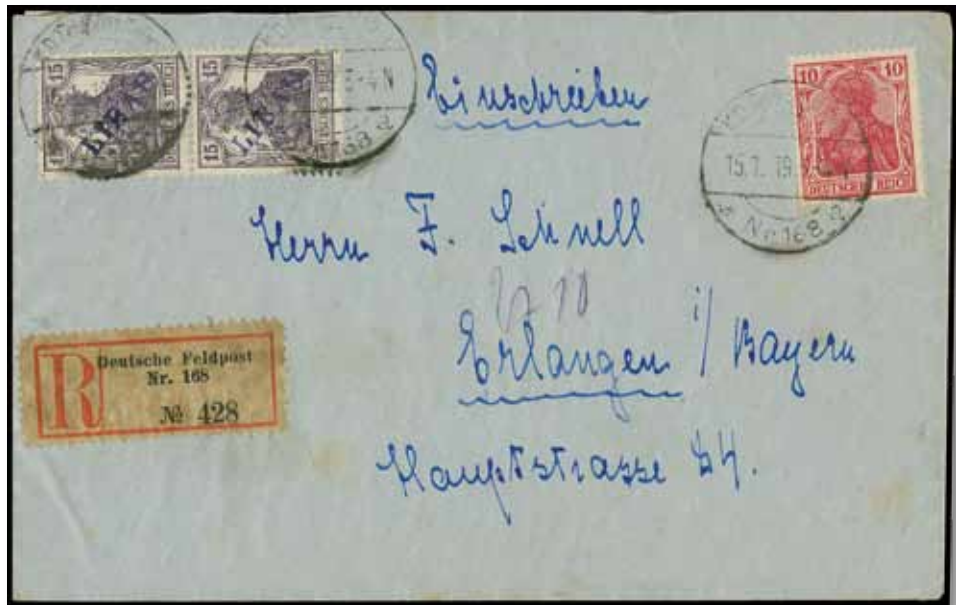 15 15
LIBAU LIBAU
Einschreiben
10 10
DEUTSCHES REICH
15.1.19.
Nr 168 a
Herrn F. Schnell
Erlangen i/ Bayern
Hauptstrasse 24.
R Deutsche Feldpost
Nr. 168
№ 428